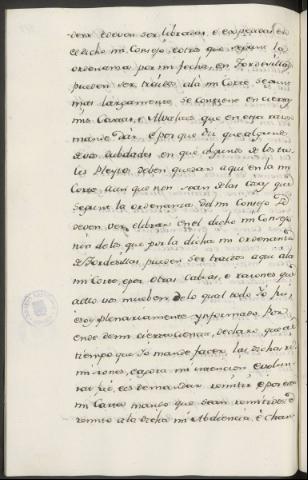 deva devan ser libradas, e expedidas en
el dicho mi Consejo, otros que segun la
ordenanza por mi fecha en Tordesillas
pueden ser traidos a la mi Corte segun
mas largamente se contiene en ciertas
mis Cartas, e Alvalaes que en esta razon
mandé dár, e por que diz que algunos
dubdades en que algunos de los ta-
les Pleytos deben quedar aqui en la mi
Corte, aun que non sean de las cosas que
segun la ordenanza del mi Consejo se
deven ver, e librar en el dicho mi Consejo
nin de los que por la dicha mi ordenanza
de Tordesillas, pueden ser traidos aqui a la
mi Corte, e por otras Cabsas, e razones que
a ello vos mueben de lo qual todo Yo fui,
e soy plenariamente ynformado. Por
ende de mi cierta ciencia, declaro que al
tiempo que Yo mandé facer las dichas re-
misiones, e agora mi intencion e volun-
tad fué, e es de mandar remitir e por esta
mi Carta mando que sean remitidos, e
remito a la dicha mi Abdiencia, e Chan